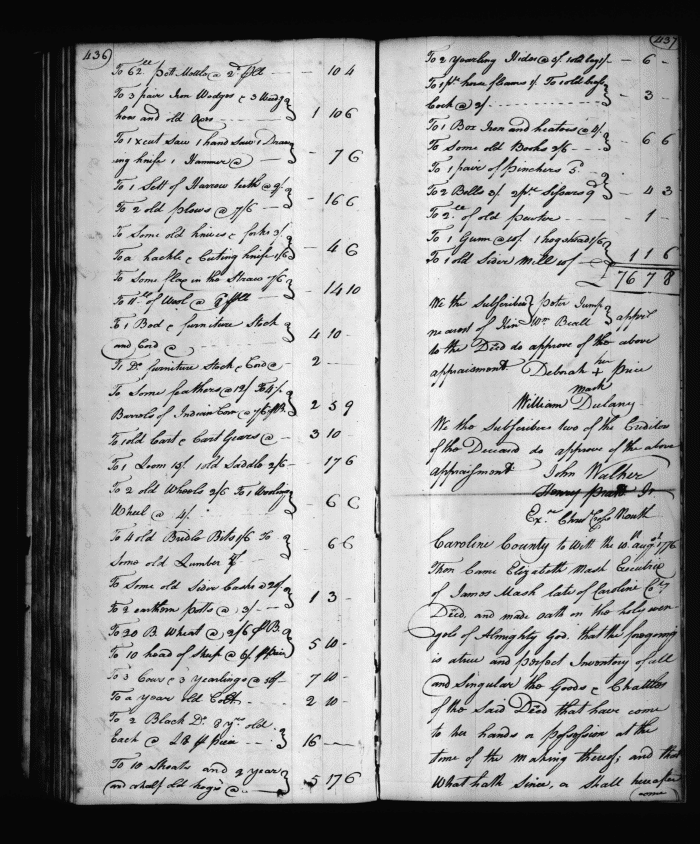 436
To 62 lb Pott Mettle @ 2d pr lb — 10 4
To 3 pair Iron Wedges & 3 Weeding
hoes and old Axes — 1 10 6
To 1 x cut Saw 1 hand Saw 1 Draw
ing knife 1 Hammer @ — 7 6
To 1 Sett of Harrow teeth @ 9/
To 2 old plows @ 7/6 — 16 6
To Some old knives & forks 3/
To a hackle & Cuting knife 1/6 — 4 6
To Some flax in the Straw 7/6
To 11 lb of Wool @ — 14 10
To 1 Bed & furniture Stock
and Cord @ — 4 10 -
To 1 Do furniture Stock & Cord @ 2 —
To Some feathers @ 12/ To
Barrels of Indian Corn @ 7/6 pr B. 2 5 9
To 1 old Cart & Cart Gears @ — 3 10 -
To 1 Loom 15/ 1 old Saddle 2/6 — 17 6
To 2 old Wheels 2/6 To 1 Woolen
Wheel @ 4/ — 6 6
To 4 old Bridle Bits 1/6 To
Some old Lumber — 6 6
To Some old Sider Casks @ 20/
To 2 earthern potts @ 3/ — 1 3 -
To 20 B. Wheat @ 2/6 pr B.
To 10 head of Sheep @ 6/ pr piece 5 10 -
To 3 Cows & 3 yearlings @ — 7 10 -
To a year old Colt — 2 10 -
To 2 Black Do 8 yrs old
Each @ £8 pr piece — 16 —
To 10 Shoats and 2 year
and a half old hogs @ — 5 17 6
437
To 2 yearling Hides @ 1 old — 6 -
To 1 pr horse fleams 1/ To 1 old brass
Cock @ 2/ — 3 -
To 1 Box Iron and heaters @ 4/
To Some old Books 2/6 — 6 6
To 1 pair of pinchers
To 2 Bells 3/ 2 pr Scissars 9d — 4 3
To 2 lb of old pewter — 1 -
To 1 Gunn @ 10/ 1 hogshead 1/6
To 1 old Sider Mill 10/ — 1 1 6
£ 76 7 8
We the Subscribers Peter Jump
nearest of Kin Wm Beall apprs
to the Decd do approve of the above
appraisment Deborah her + Price
mark
William Dulany
We the Subscribers two of the Creditors
of the Deceasd do approve of the above
appraisment John Walker
Henry Jr
Exr Chrisr Cross Routh
Caroline County to Witt the 10th augt 1776
Then Came Elizabeth Mash Executrix
of James Mash late of Caroline Coty
Decd, and made oath on the holy evan
gels of Almighty God, that the foregoing
is a true and perfect Inventory of all
and Singular the Goods & Chattles
of the Said Decd that have come
to her hands or possession at the
time of the making thereof; and that
What hath Since, or Shall hereafter
come